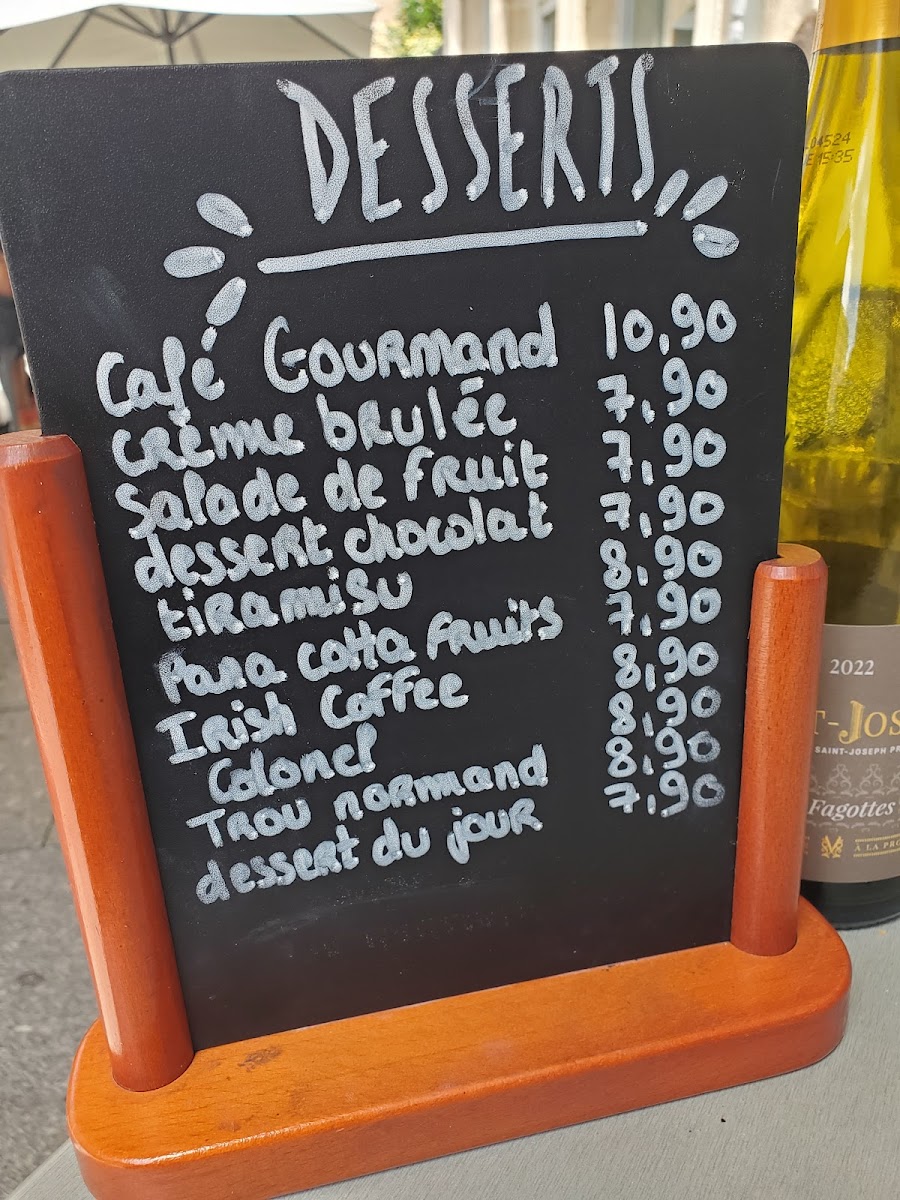 DESSERTS
Café Gourmand 10,90
crème brulée 7,90
Salade de fruit 7,90
dessert chocolat 7,90
tiramisu 8,90
Pana cotta fruits 7,90
Irish Coffee 8,90
Colonel 8,90
Trou normand 8,90
dessert du jour 7,90
04524
15:35
2022
T-JOS
SAINT-JOSEPH PR
Fagottes
À LA PRO